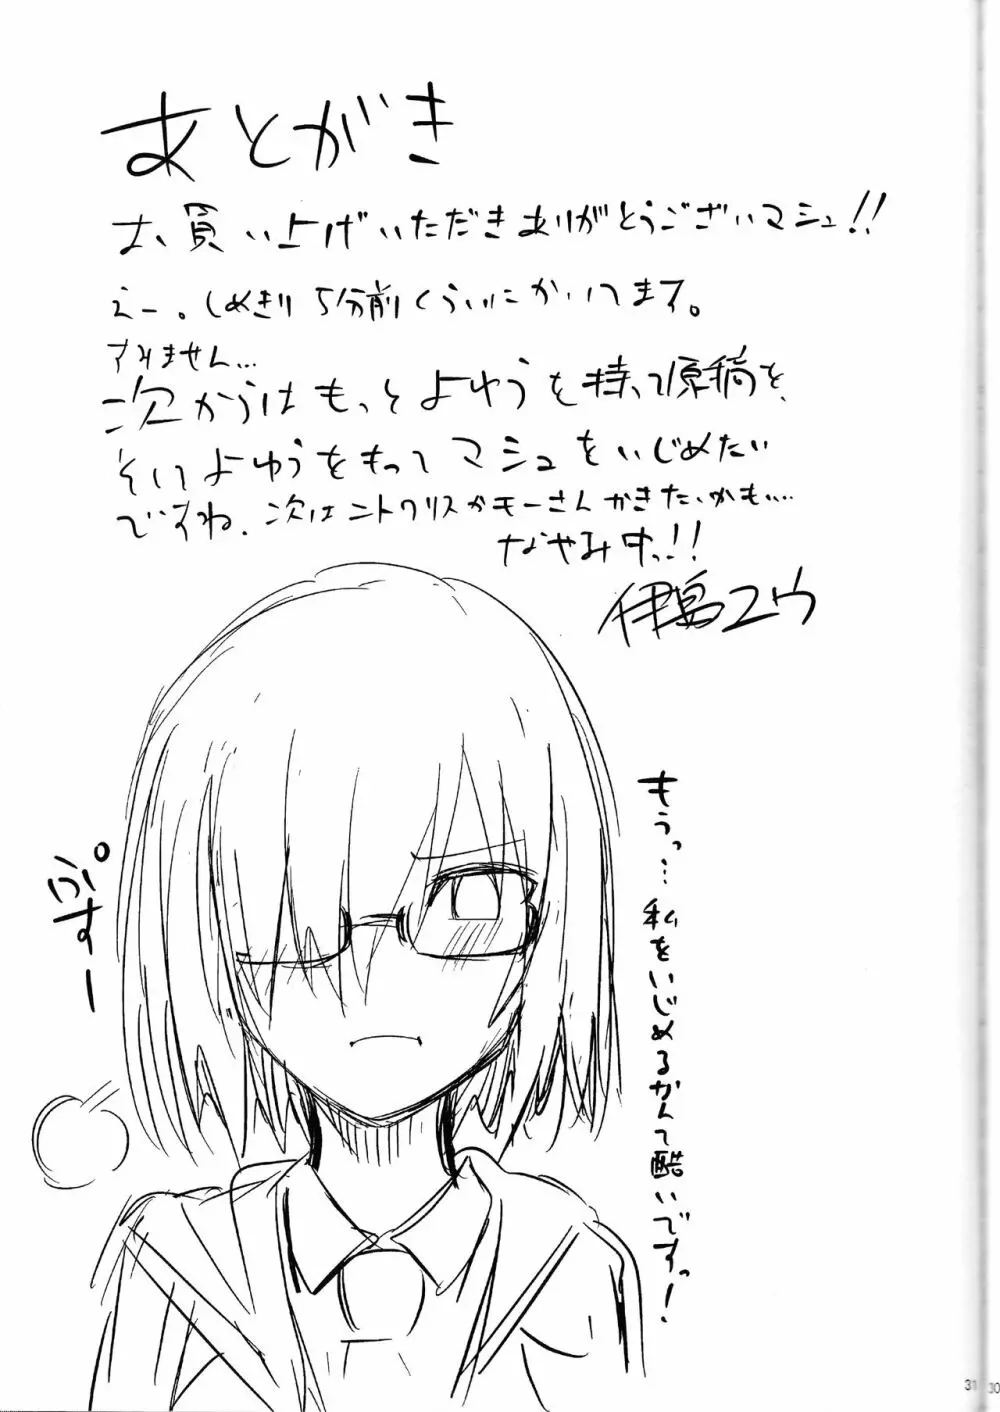 あとがき
お買い上げいただきありがとうございマシュ!!
えー。しめきり5分前くらいにかいてます。
すみません…
次からはもっとよゆうを持って原稿を、
そしてよゆうをもってマシュをいじめたい
ですね、次はニトクリスかモーさんかきたいかも….
なやみ中っ!!
伊島ユウ
もうっ…私をいじめるなんて酷いですっ!
ぷすー
31
30